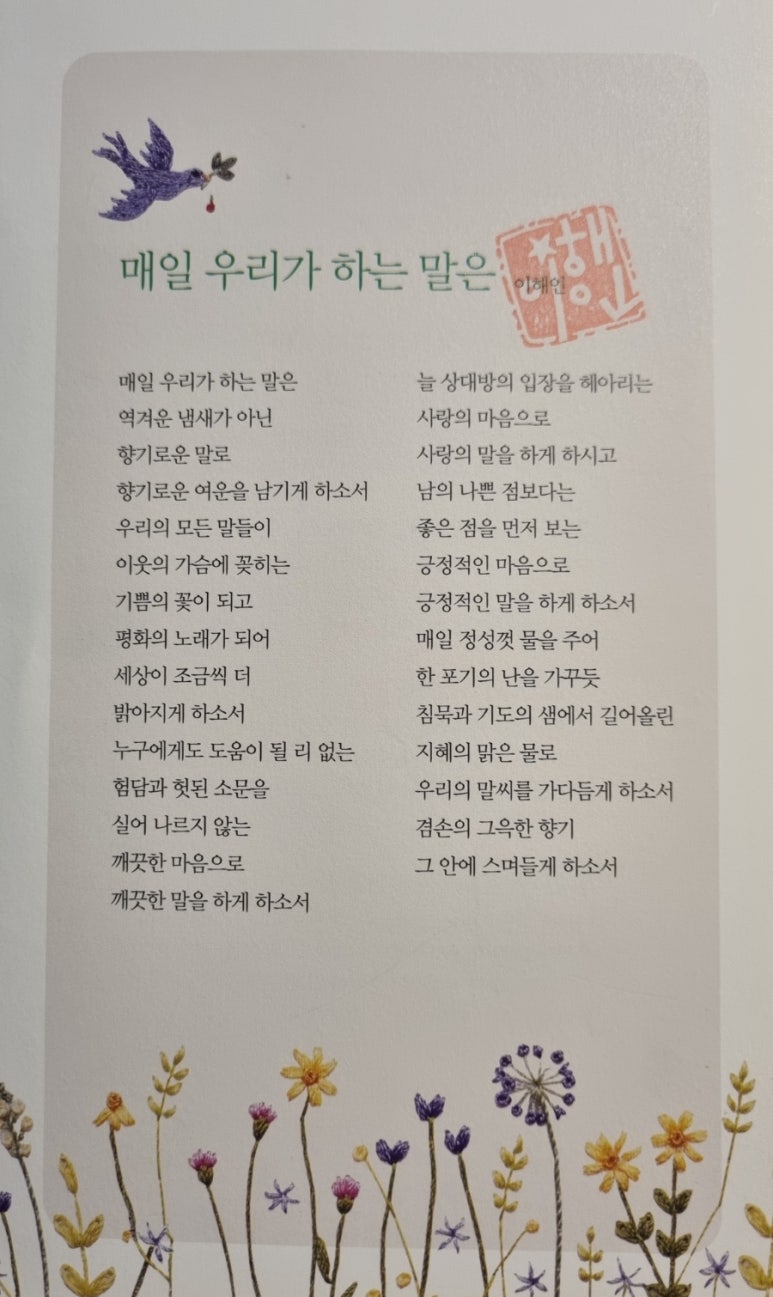 매일 우리가 하는 말은
이해인
매일 우리가 하는 말은
역겨운 냄새가 아닌
향기로운 말로
향기로운 여운을 남기게 하소서
우리의 모든 말들이
이웃의 가슴에 꽂히는
기쁨의 꽃이 되고
평화의 노래가 되어
세상이 조금씩 더
밝아지게 하소서
누구에게도 도움이 될 리 없는
험담과 헛된 소문을
실어 나르지 않는
깨끗한 마음으로
깨끗한 말을 하게 하소서
늘 상대방의 입장을 헤아리는
사랑의 마음으로
사랑의 말을 하게 하시고
남의 나쁜 점보다는
좋은 점을 먼저 보는
긍정적인 마음으로
긍정적인 말을 하게 하소서
매일 정성껏 물을 주어
한 포기의 난을 가꾸듯
침묵과 기도의 샘에서 길어올린
지혜의 맑은 물로
우리의 말씨를 가다듬게 하소서
겸손의 그윽한 향기
그 안에 스며들게 하소서